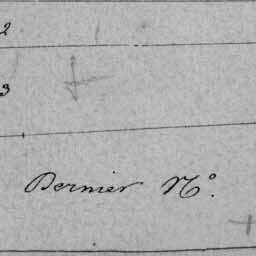 2
3
Dernier N°.